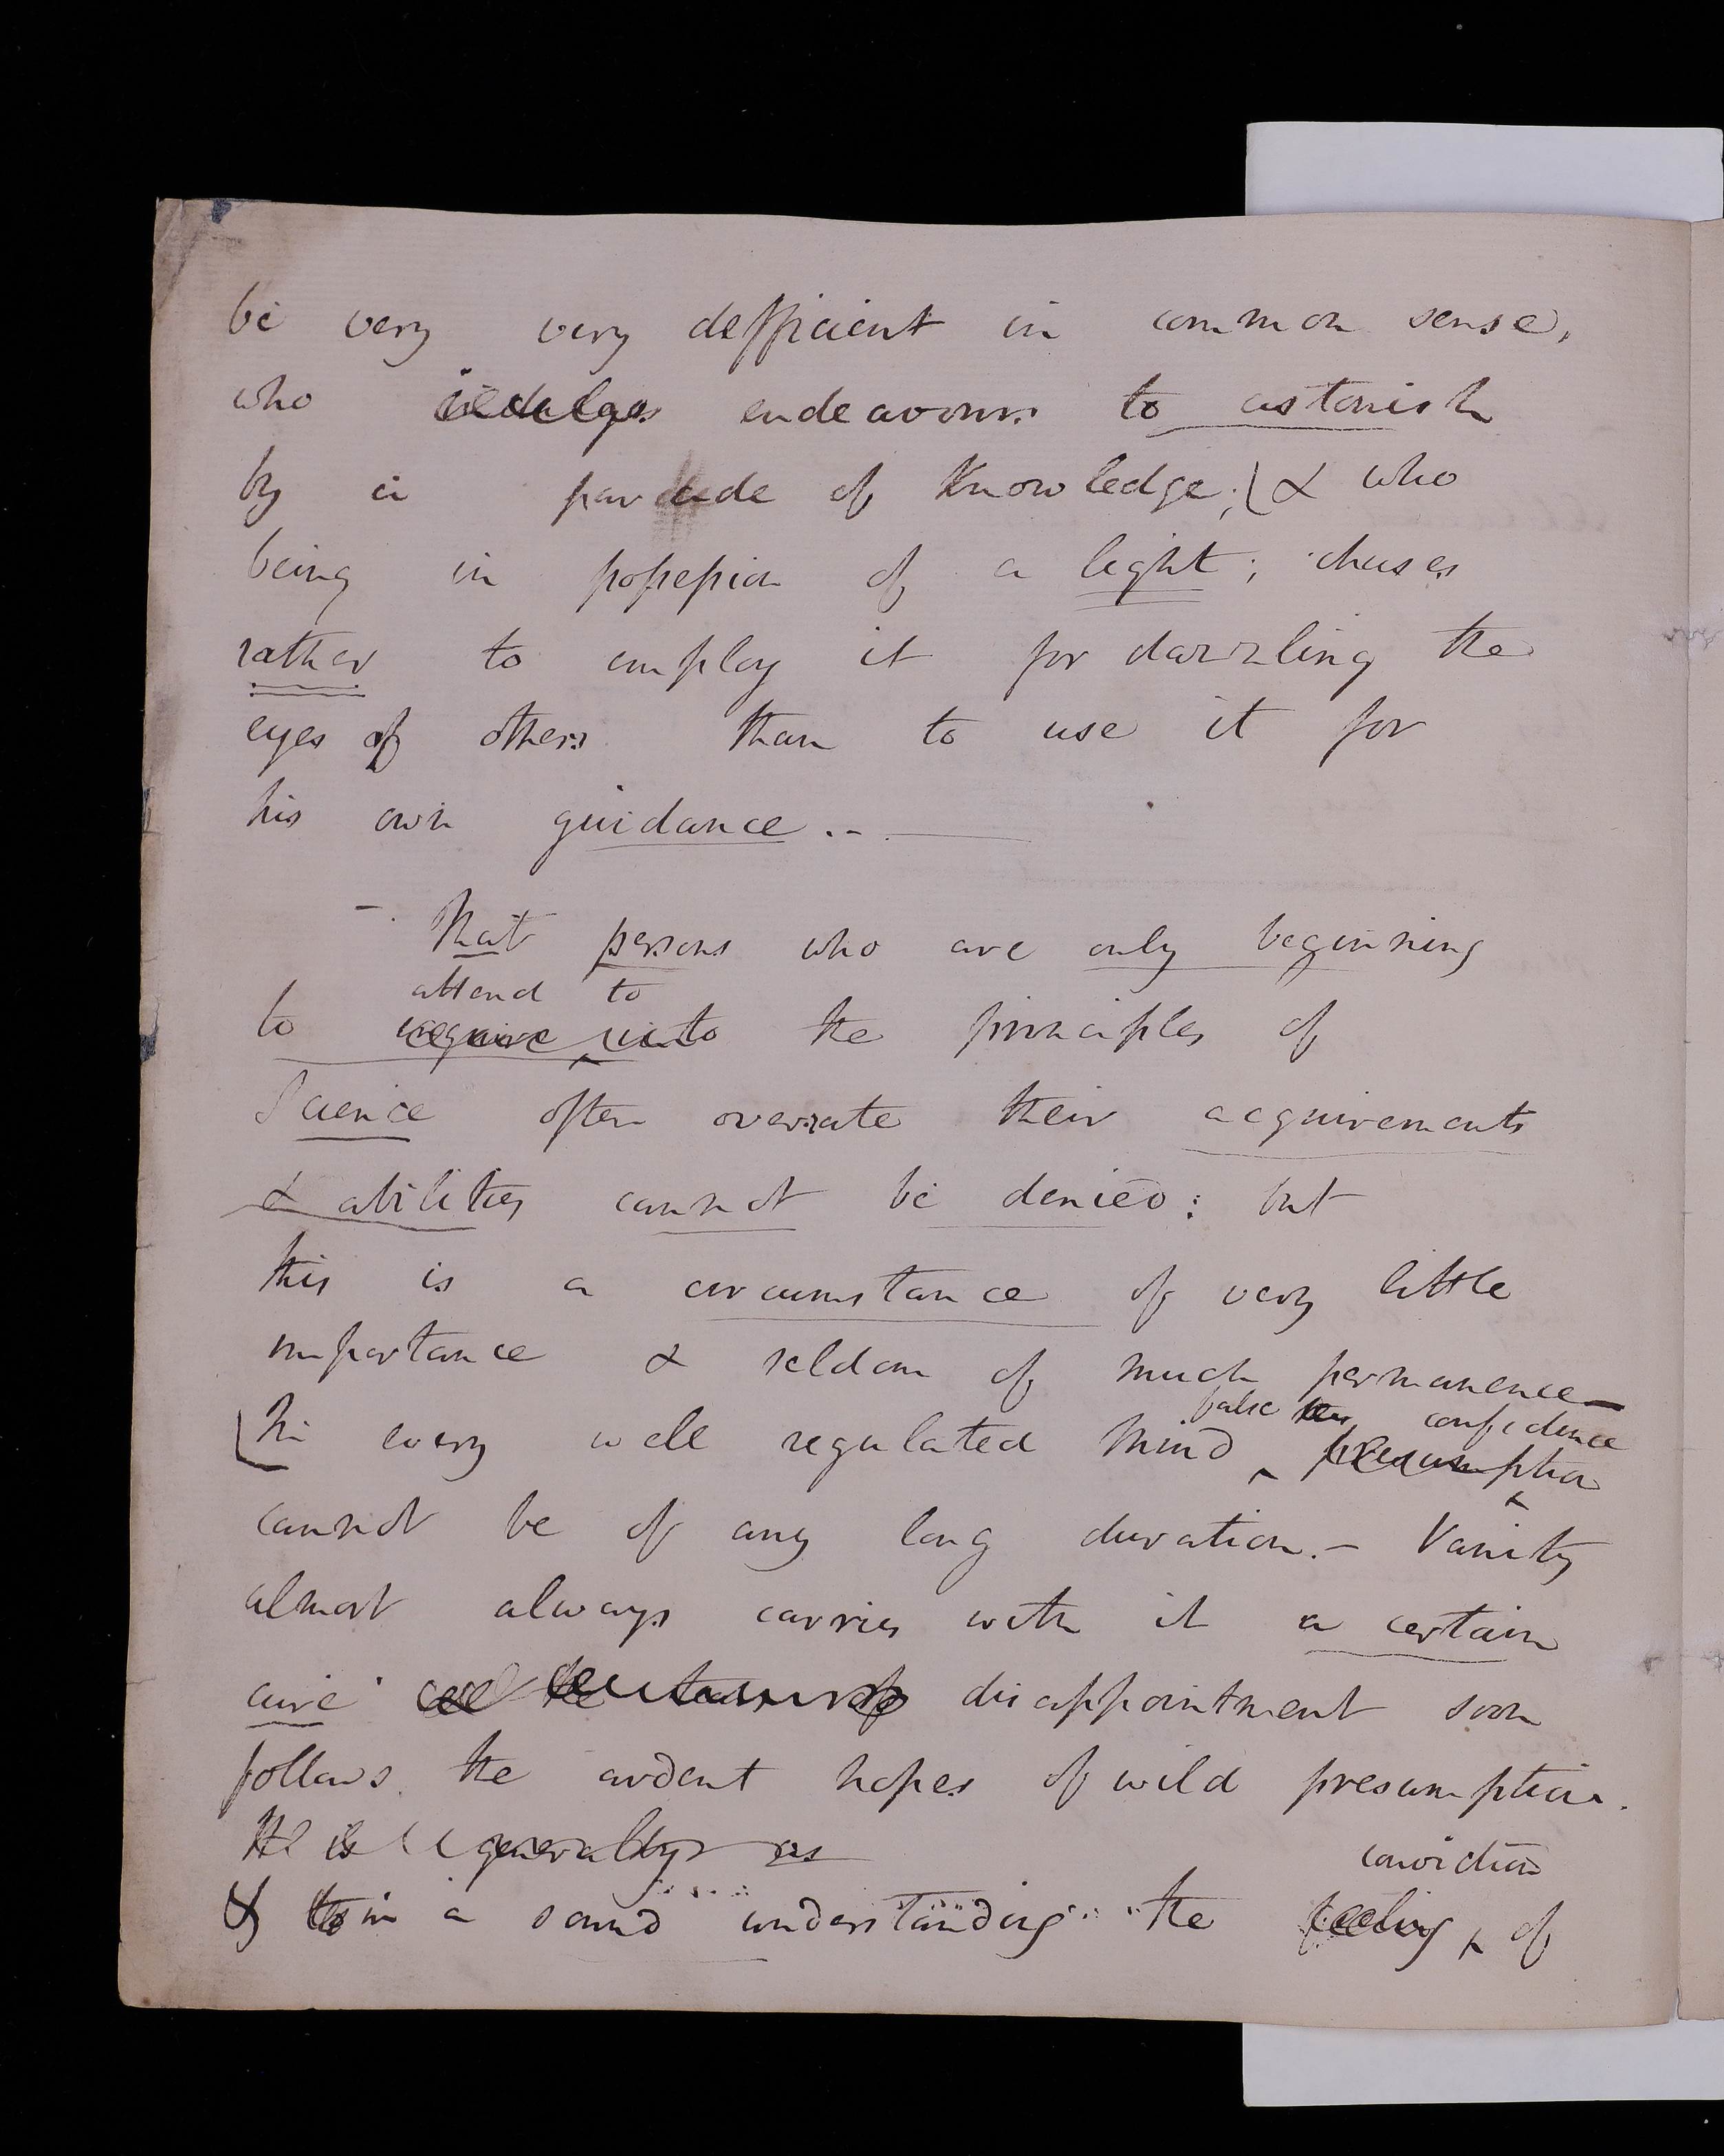 be very very defficient in common sense,
who indulges endeavours to astonish
by a parade of Knowledge; & who
being in possession of a light; chuses
rather to employ it for dazzling the
eyes of others than to use it for
his own guidance..-
-. That persons who are only beginning
attend to
to enquire into the principles of
Science often overrate their acquirements
& abilities cannot be denied: but
this is a circumstance of very little
importance & seldom of much permanence
false confidence
In every well regulated Mind presumption
cannot be of any long duration.- Vanity
almost always carries with it a certain
cure disappointment soon
follows the ardent hopes of wild presumption.
It is generally as
conviction
& in a sound understanding the feeling of